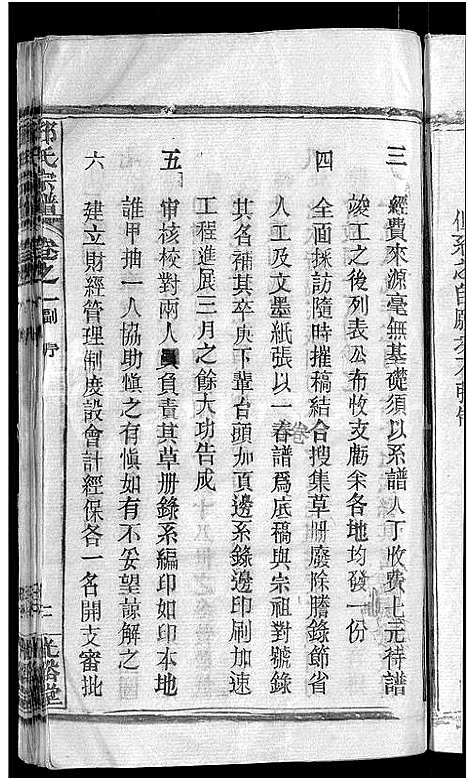 三 經費來源毫無基礎須以系譜人丁收費上元待譜
竣工之後列表公布收支虧余各地均發一份
四 全面採訪隨時摧稿結合搜集草册廢除謄錄節省
人工及文墨紙張以一卷譜爲底稿與宗祖對號錄
其名補其卒庚下輩台頭加頁邊系錄邊印刷加速
工程進展三月之餘大功告成
五 审核校對兩人員負責其草册錄系編印如印本地
誰甲抽一人協助愼之有愼如有不妥望諒解之
六 建立財經管理制度設會計經保各一名開支審批
氏宗譜
卷之一
副序
光裕堂